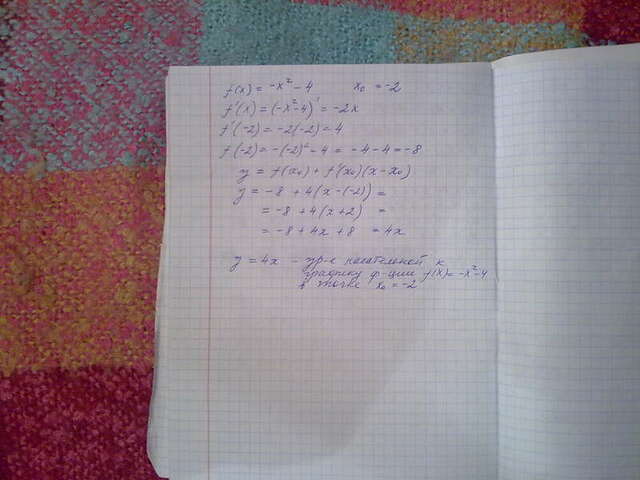 f(x) = -x² - 4 x₀ = -2
f'(x) = (-x² - 4)' = -2x
f'(-2) = -2(-2) = 4
f(-2) = -(-2)² - 4 = -4 - 4 = -8
y = f(x₀) + f'(x₀)(x - x₀)
y = -8 + 4(x - (-2)) =
= -8 + 4(x + 2) =
= -8 + 4x + 8 = 4x
y = 4x - ур-е касательной к
графику ф-ции f(x) = -x² - 4
в точке x₀ = -2